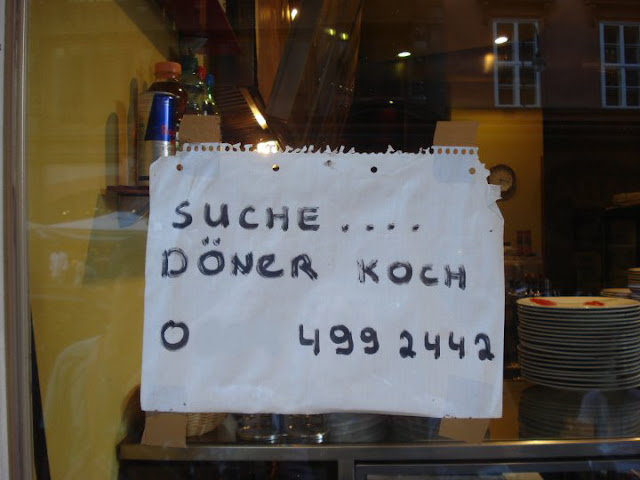 SUCHE....
DÖNER KOCH
0 499 2442